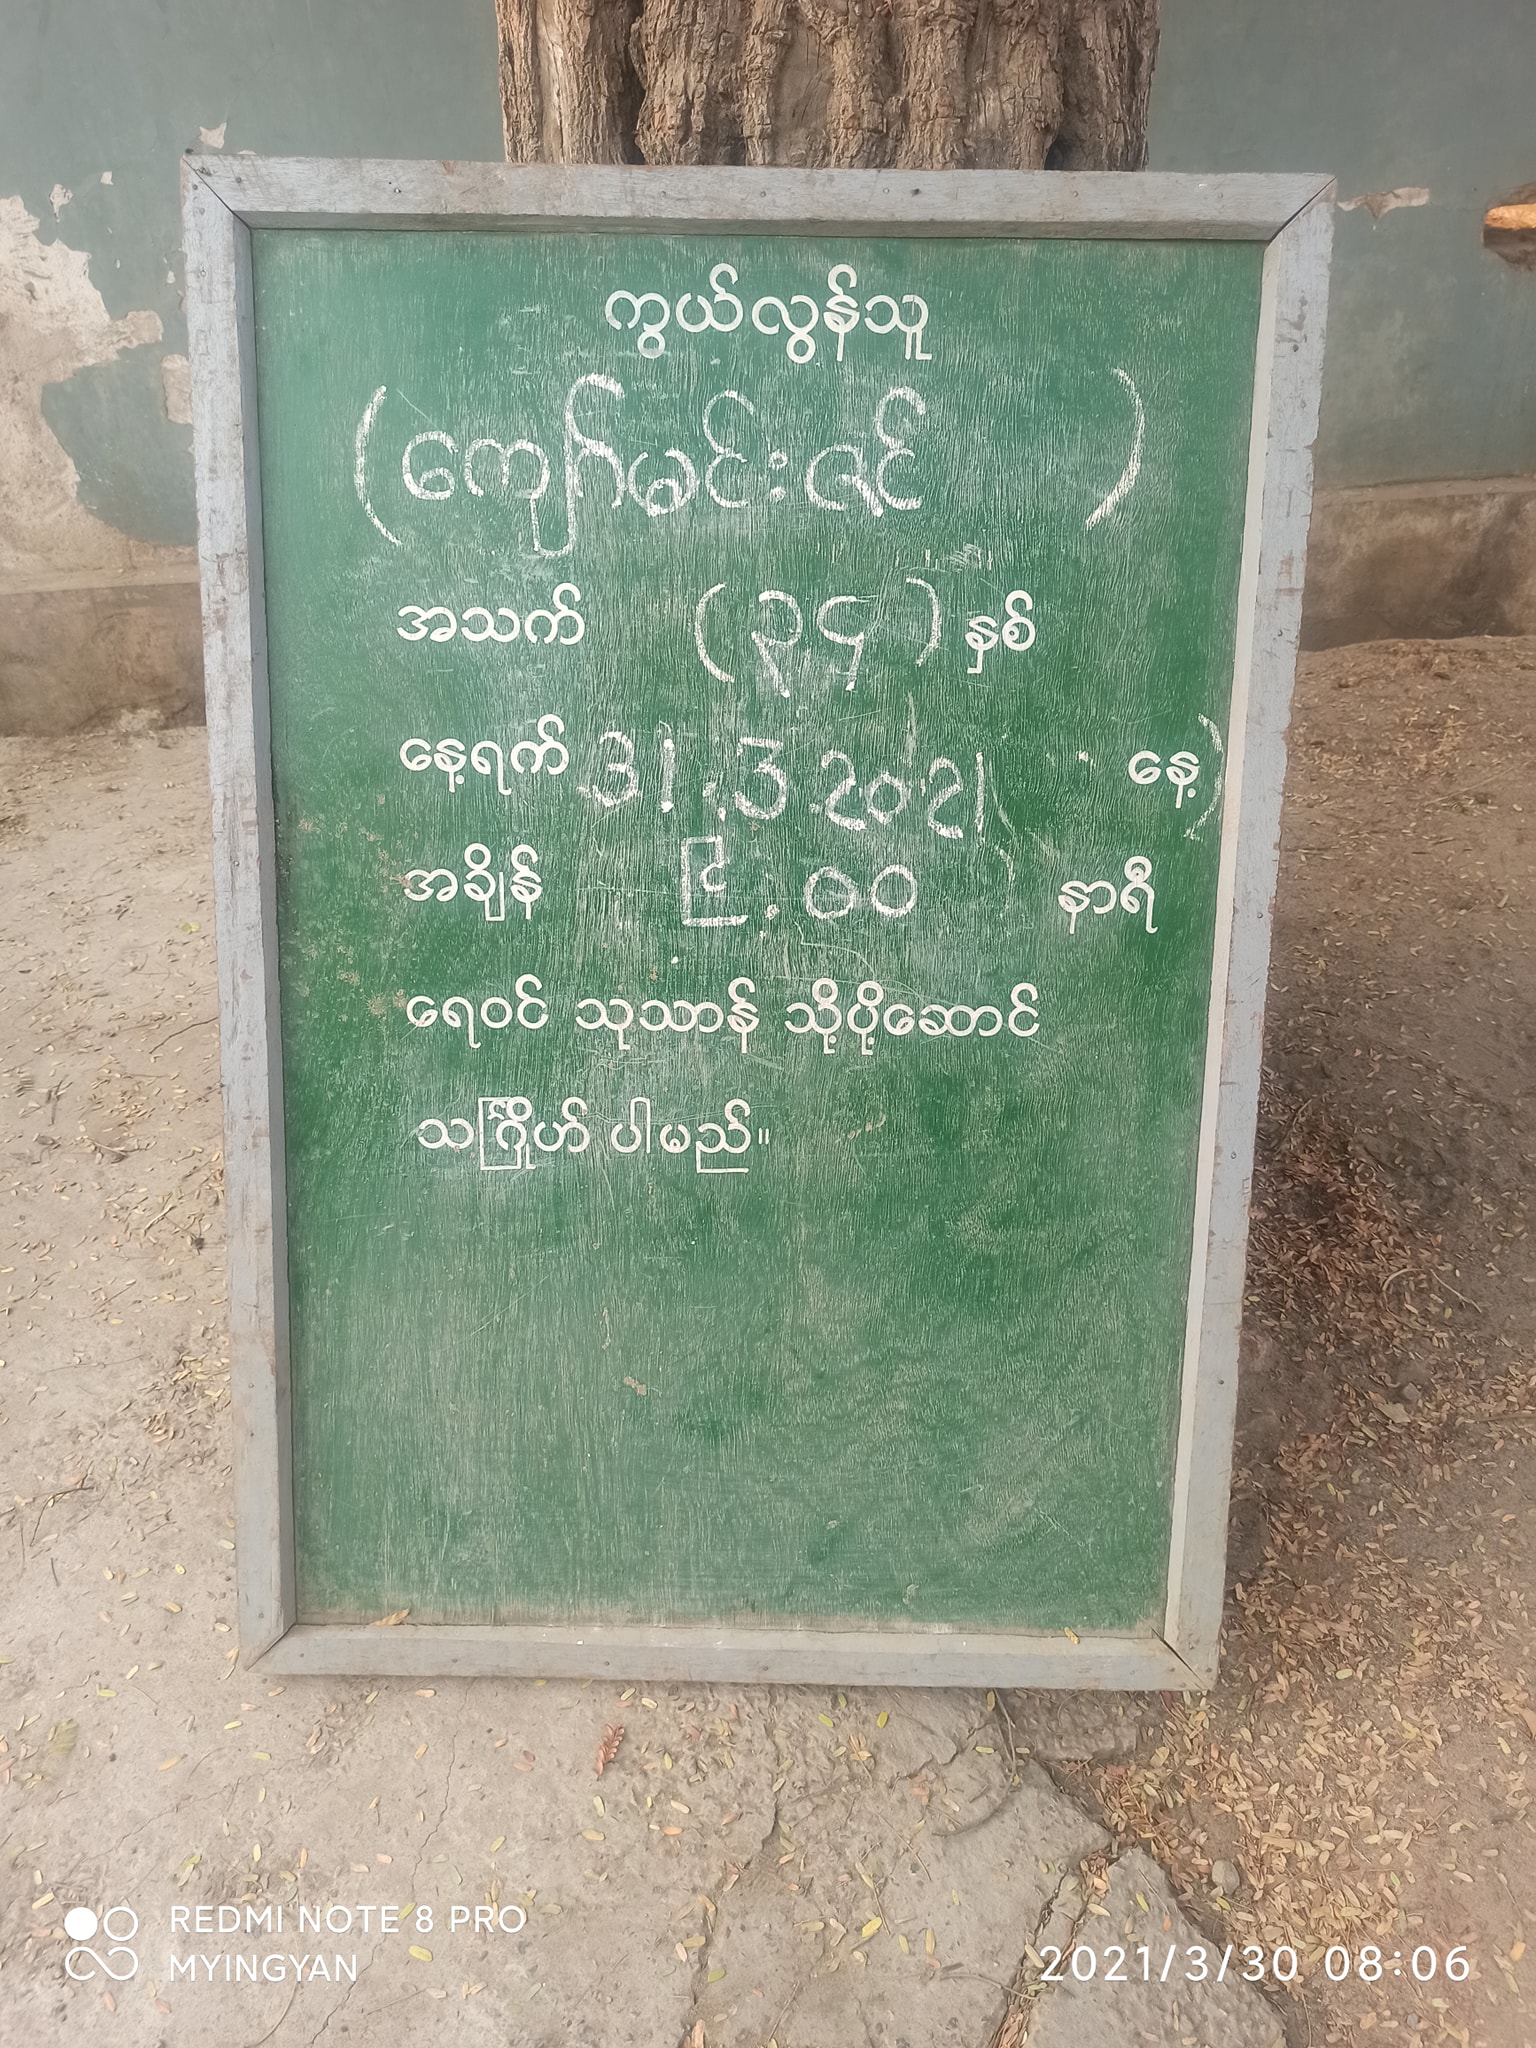 ကွယ်လွန်သူ
(ကျော်မင်းဇင်)
အသက် (၃၄) နှစ်
နေ့ရက် 31.3.2021 နေ့)
အချိန် ၉.၀၀ နာရီ
ရေဝင် သုသာန် သို့ပို့ဆောင်
သင်္ဂြိုဟ် ပါမည်။
REDMI NOTE 8 PRO
MYINGYAN
2021/3/30 08:06